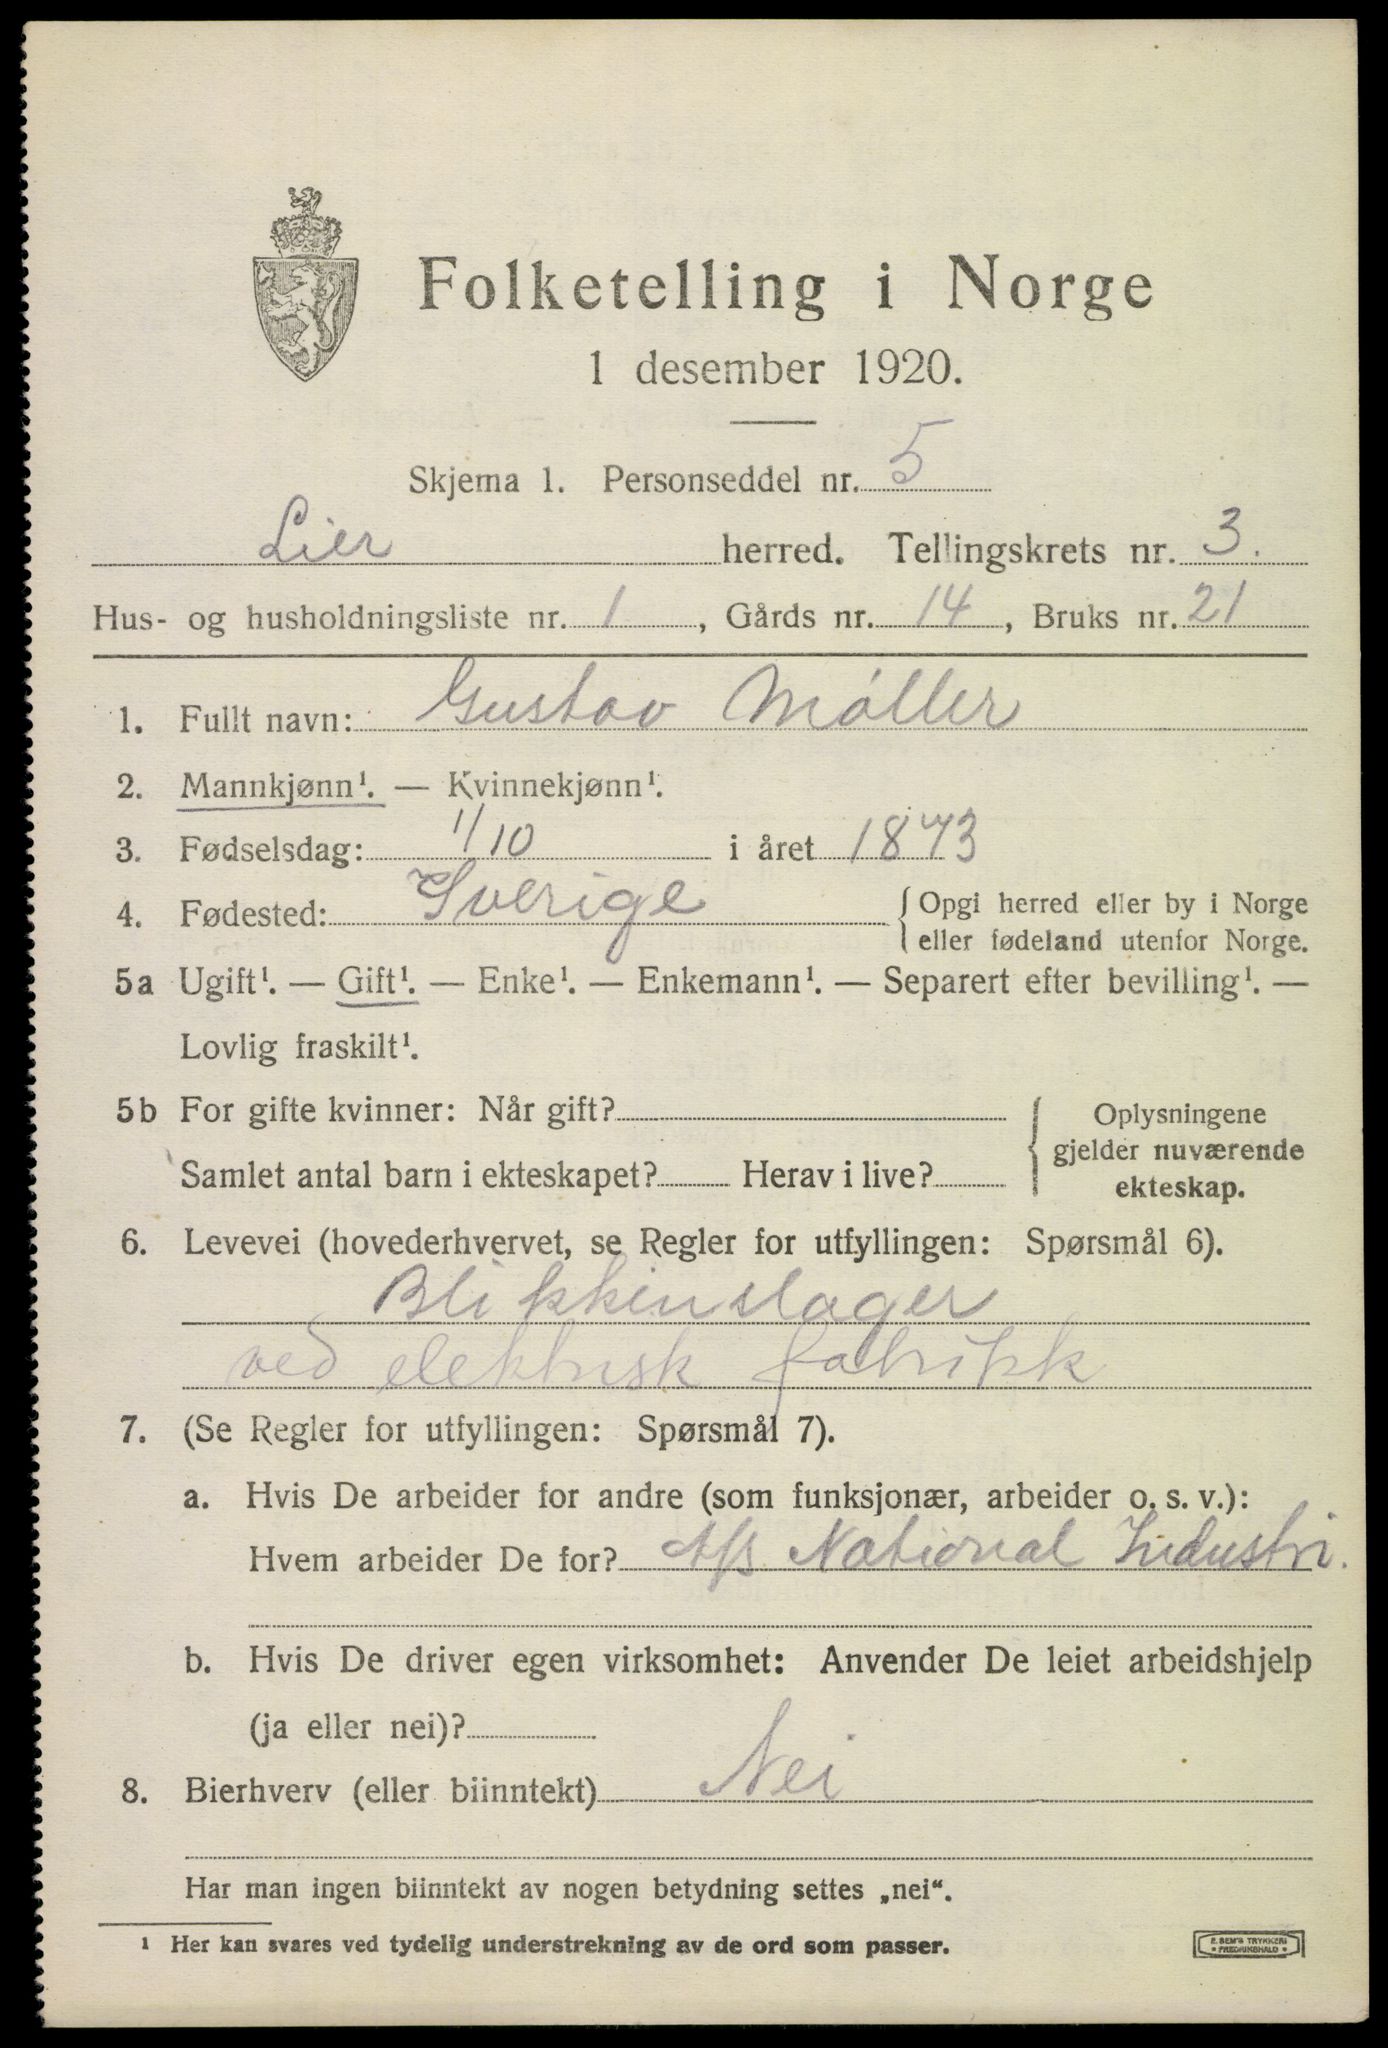 Folketelling i Norge
1 desember 1920.
Skjema 1. Personseddel nr. 5
Lier herred. Tellingskrets nr. 3.
Hus- og husholdningsliste nr. 1, Gårds nr. 14, Bruks nr. 21
1. Fullt navn: Gustav Møller
2. Mannkjønn¹. — Kvinnekjønn¹.
3. Fødselsdag: 1/10 i året 1873
4. Fødested: Sverige { Opgi herred eller by i Norge
eller fødeland utenfor Norge.
5a Ugift¹. — Gift¹. — Enke¹. — Enkemann¹. — Separert efter bevilling¹. —
Lovlig fraskilt¹.
5b For gifte kvinner: Når gift? { Oplysningene
gjelder nuværende
Samlet antal barn i ekteskapet? Herav i live?
ekteskap.
6. Levevei (hovederhvervet, se Regler for utfyllingen: Spørsmål 6).
Blikkenslager
ved elektrisk fabrikk
7. (Se Regler for utfyllingen: Spørsmål 7).
a. Hvis De arbeider for andre (som funksjonær, arbeider o. s. v.):
Hvem arbeider De for? A/S National Industri.
b. Hvis De driver egen virksomhet: Anvender De leiet arbeidshjelp
(ja eller nei)?
8. Bierhverv (eller biinntekt) Nei
Har man ingen biinntekt av nogen betydning settes „nei“.
¹ Her kan svares ved tydelig understrekning av de ord som passer.
E. SEM'S TRYKKERI
* FREDRIKSHALD *